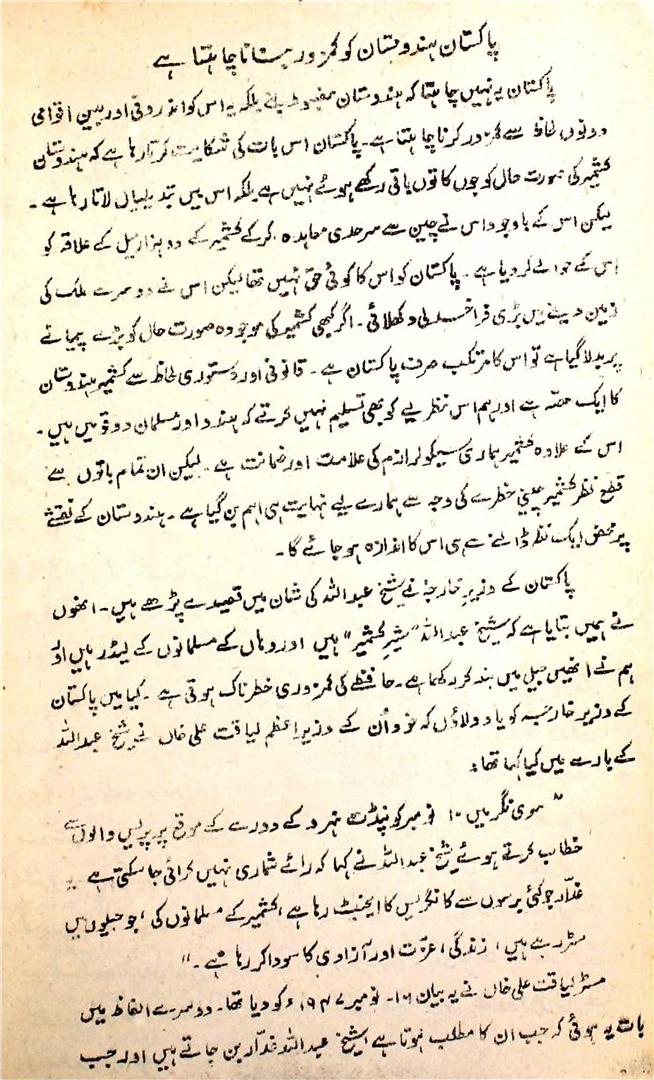 پاکستان ہندوستان کو کمزور بنانا چاہتا ہے
پاکستان یہ نہیں چاہتا کہ ہندوستان مضبوط بنے بلکہ یہ اس کو اندرونی اور بین اقوامی
دونوں لحاظ سے کمزور کرنا چاہتا ہے۔ پاکستان اس بات کی شکایت کرتا رہا ہے کہ ہندوستان
کشمیر کی صورت حال کو جوں کا توں باقی رکھے ہوئے نہیں ہے بلکہ اس میں تبدیلیاں لاتا رہا ہے۔
لیکن اس کے باوجود اس نے چین سے سرحدی معاہدہ کر کے کشمیر کے دو ہزار میل کے علاقہ کو
اس کے حوالے کر دیا ہے۔ پاکستان کو اس کا کوئی حق نہیں تھا لیکن اس نے دوسرے ملک کی
زمین دینے میں بڑی فراخدلی دکھلائی۔ اگر کبھی کشمیر کی موجودہ صورت حال کو بڑے پیمانے
پر بدلا گیا ہے تو اس کا مرتکب صرف پاکستان ہے۔ قانونی اور دستوری لحاظ سے کشمیر ہندوستان
کا ایک حصہ ہے اور ہم اس نظریے کو بھی تسلیم نہیں کرتے کہ ہندو اور مسلمان دو قومیں ہیں۔
اس کے علاوہ کشمیر ہماری سیکولرازم کی علامت اور ضمانت ہے۔ لیکن ان تمام باتوں سے
قطع نظر کشمیر چینی خطرے کی وجہ سے ہمارے لیے نہایت ہی اہم بن گیا ہے۔ ہندوستان کے نقشے
پر محض ایک نظر ڈالنے سے ہی اس کا اندازہ ہو جائے گا۔
پاکستان کے وزیر خارجہ نے شیخ عبداللہ کی شان میں قصیدے پڑھے ہیں۔ انھوں
نے ہمیں بتایا ہے کہ شیخ عبداللہ "شیر کشمیر" ہیں اور وہاں کے مسلمانوں کے لیڈر ہیں اور
ہم نے انھیں جیل میں بند کر رکھا ہے۔ حافظے کی کمزوری خطرناک ہوتی ہے۔ کیا میں پاکستان
کے وزیر خارجہ کو یاد دلاؤں کہ خود اُن کے وزیر اعظم لیاقت علی خاں نے شیخ عبداللہ
کے بارے میں کیا کہا تھا:
" سری نگر میں ۱۰ نومبر کو پنڈت نہرو کے دورے کے موقع پر پریس والوں سے
خطاب کرتے ہوئے شیخ عبداللہ نے کہا کہ رائے شماری نہیں کرائی جا سکتی ہے یہ
غدّار جو کئی برسوں سے کانگریس کا ایجنٹ رہا ہے، کشمیر کے مسلمانوں کی، جو جیلوں میں
سڑ رہے ہیں، زندگی، عزّت اور آزادی کا سودا کر رہا ہے۔"
مسٹر لیاقت علی خاں نے یہ بیان ۱۶۔ نومبر ۱۹۴۷ء کو دیا تھا۔ دوسرے الفاظ میں
بات یہ ہوئی کہ جب ان کا مطلب ہوتا ہے شیخ عبداللہ غدّار بن جاتے ہیں اور جب